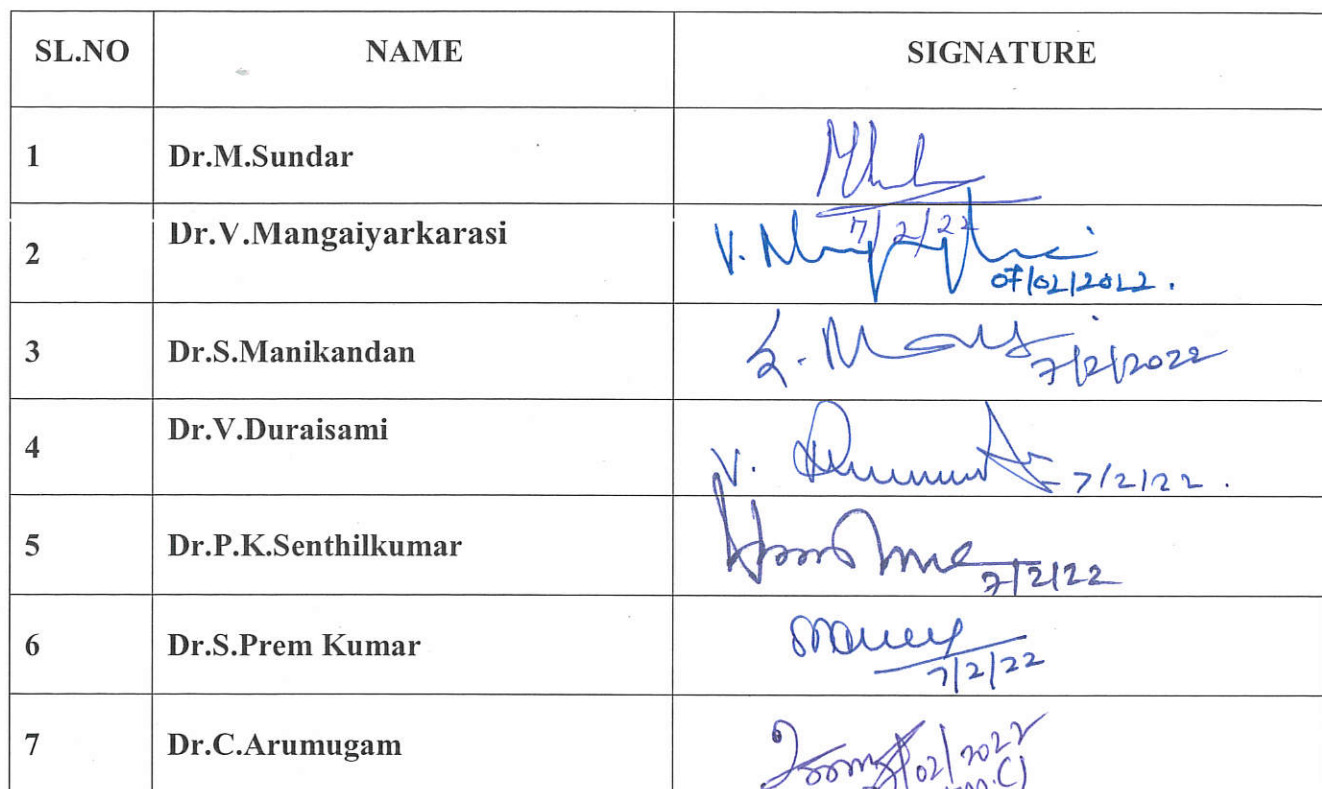 SL.NO NAME SIGNATURE
1 Dr.M.Sundar
7/2/22
2 Dr.V.Mangaiyarkarasi V.
07/02/2022.
3 Dr.S.Manikandan 7/2/2022
4 Dr.V.Duraisami V. 7/2/22.
5 Dr.P.K.Senthilkumar 7/2/22
6 Dr.S.Prem Kumar
7/2/22
7 Dr.C.Arumugam 02/2022